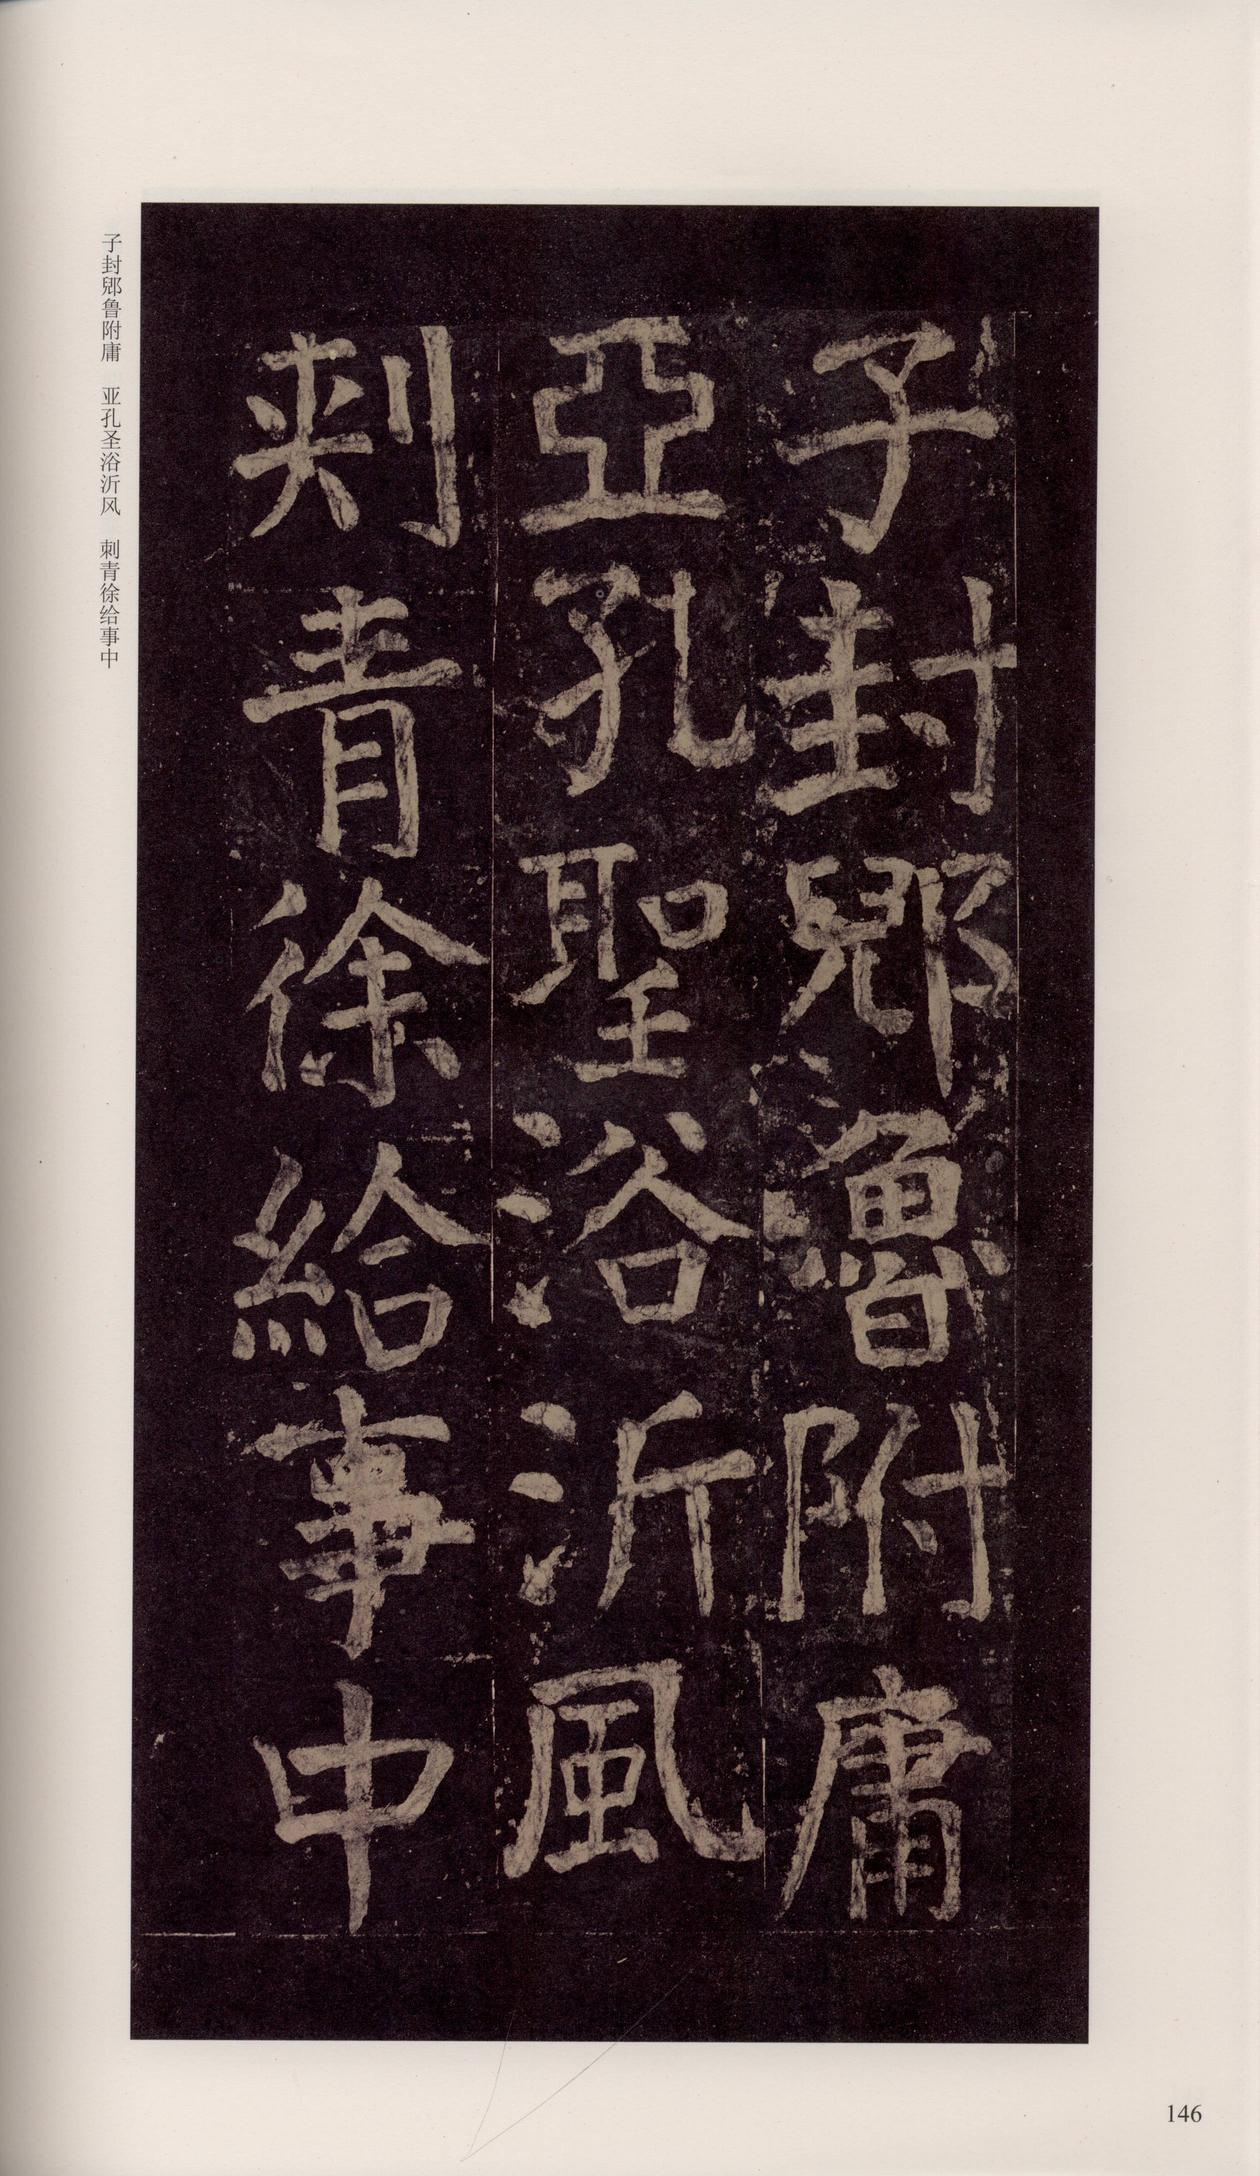 子封郳魯附庸
亞孔聖浴沂風
刾青徐給事中
子封郳鲁附庸　亚孔圣浴沂风　刺青徐给事中
146